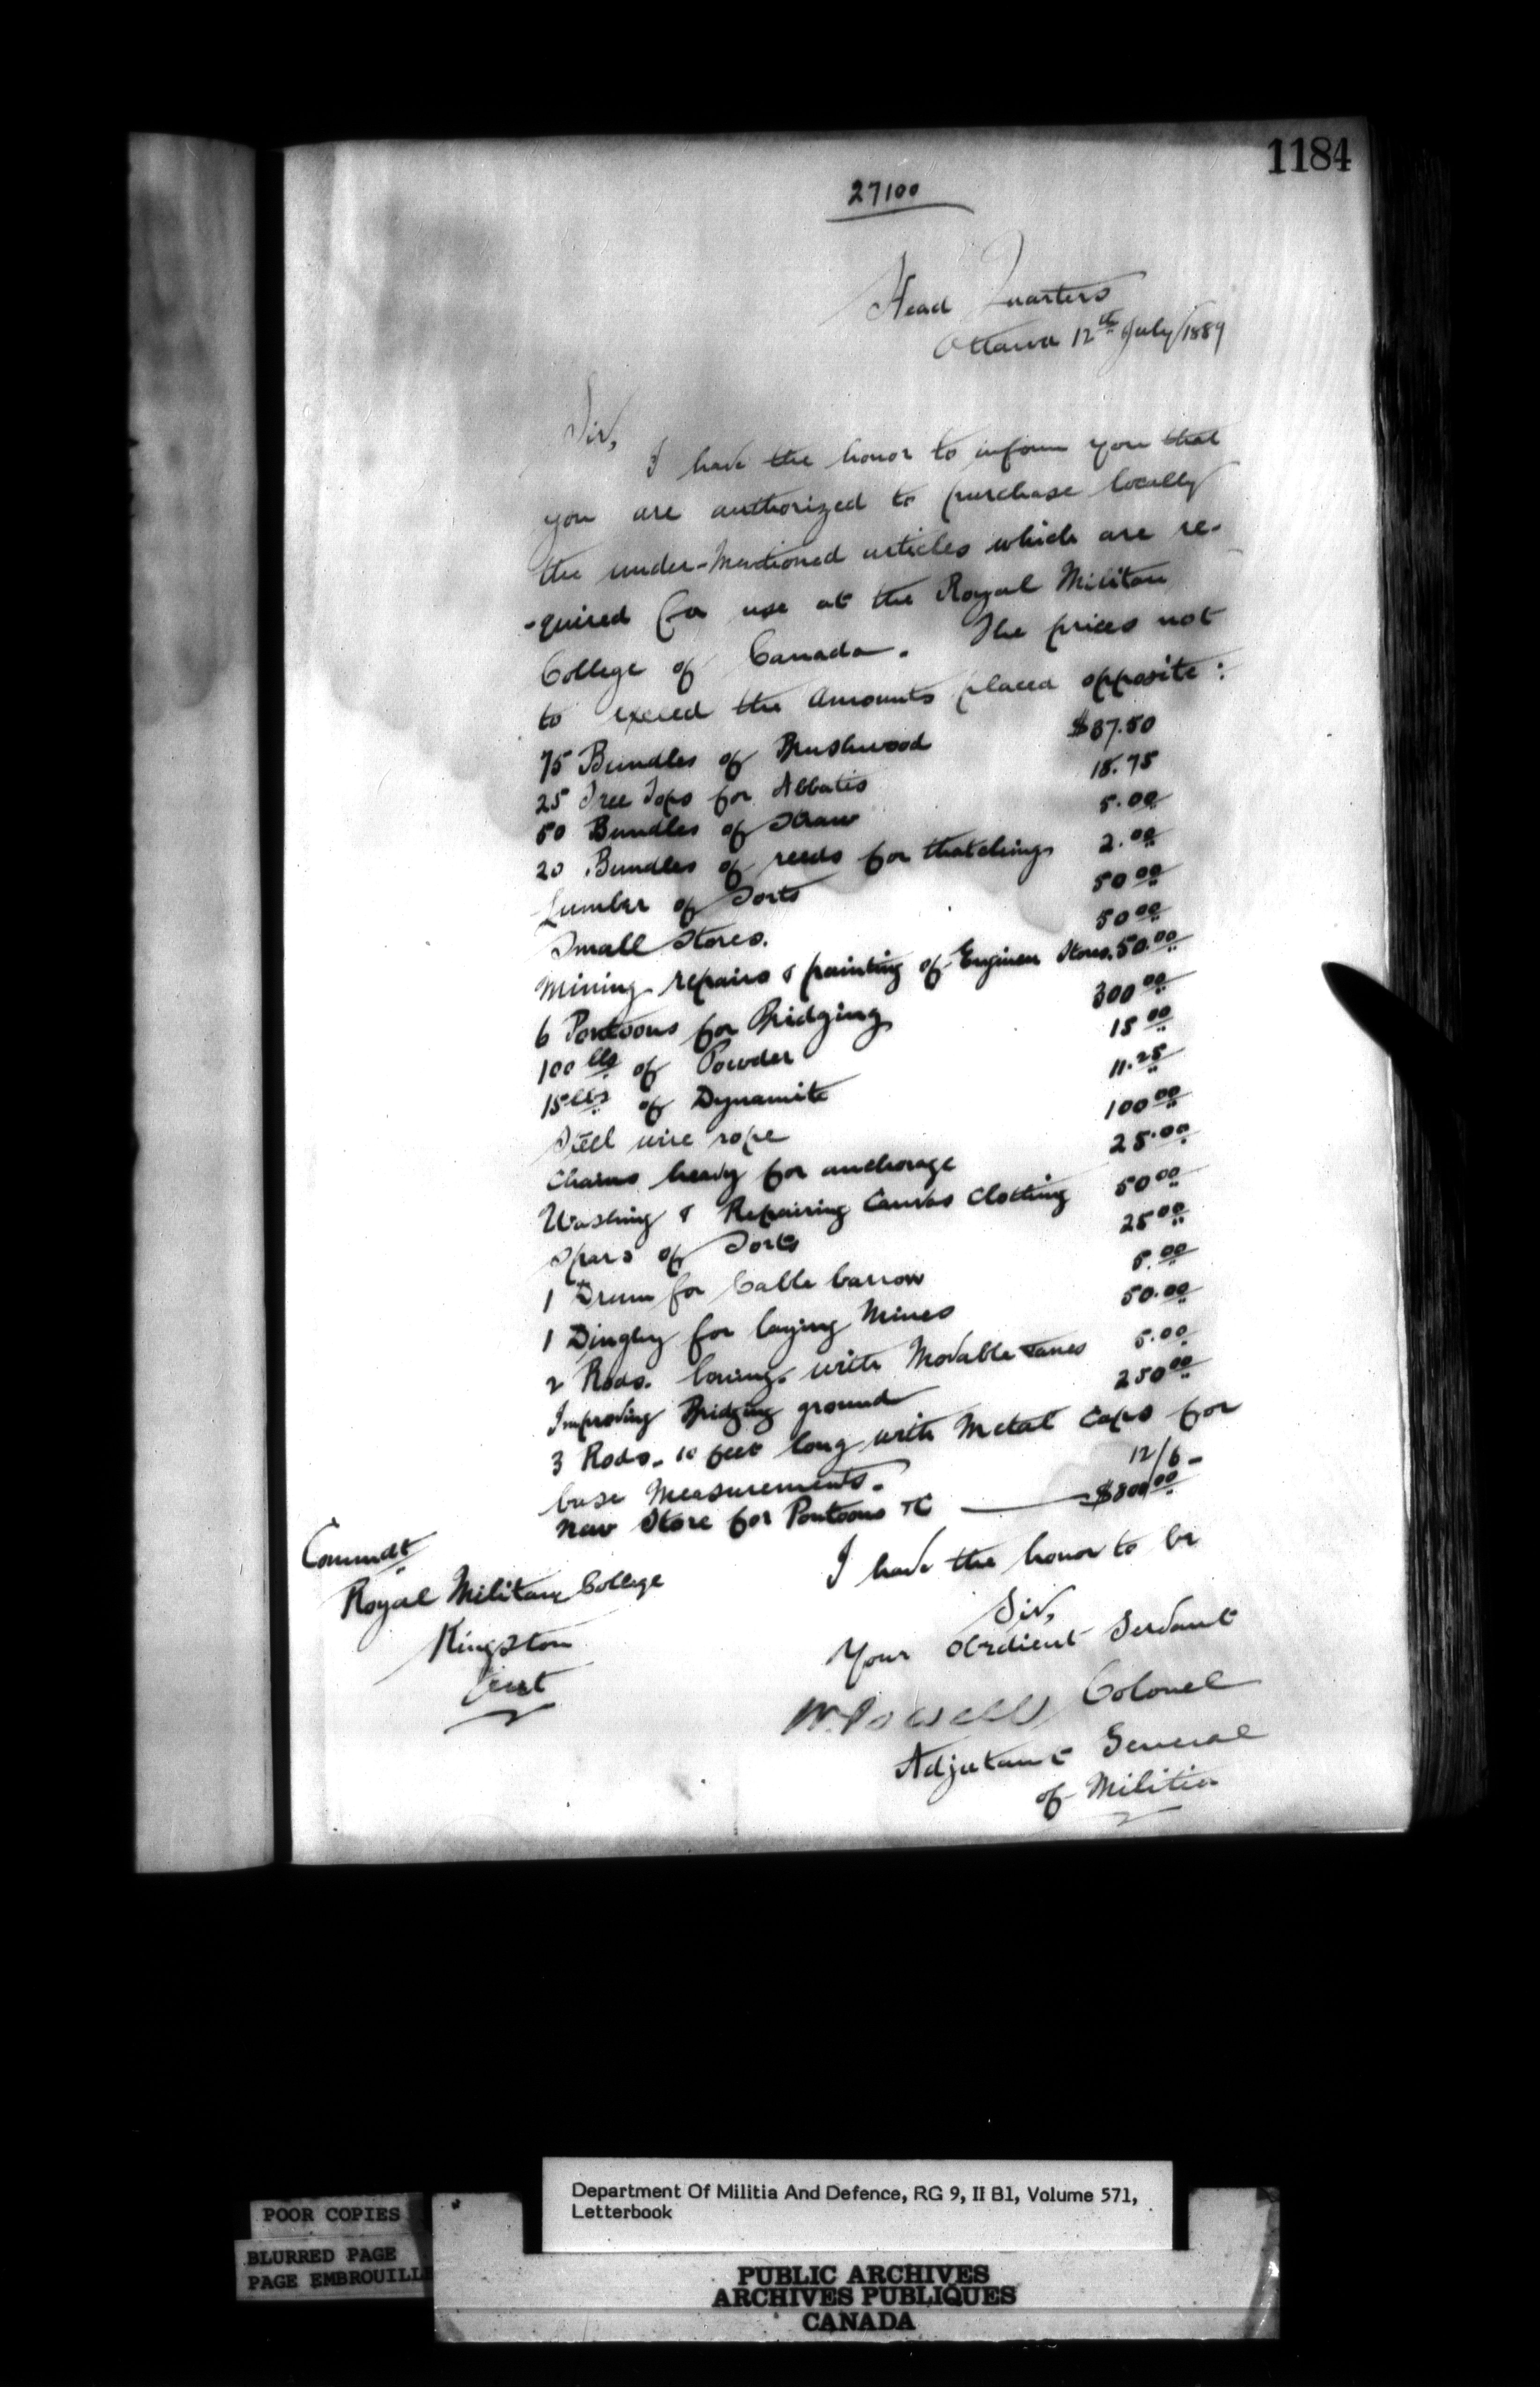 1184
27100
Head Quarters
Ottawa 12th July/1889
Sir,
I have the honor to inform you that
you are authorized to purchase locally
the under-mentioned articles which are re-
-quired for use at the Royal Military
College of Canada. The prices not
to exceed the amounts placed opposite:
75 Bundles of Brushwood $37.50
25 Tree Tops for Abbatis 18.75
50 Bundles of Straw 5.00
20 Bundles of reeds for thatching 2.00
Lumber of Sorts 50 00
Small Stores. 50 00
Mining repairs & painting of Engineer Stores. 50.00
6 Pontoons for Bridging 300 00
100 lbs of Powder 15 00
15 lbs of Dynamite 11.25
Steel wire rope 100 00
Chains heavy for anchorage 25.00
Washing & Repairing Canvas Clothing 50 00
Spars of Sorts 25 00
1 Drum for Cable barrow 5.00
1 Dinghy for laying Mines 50.00
2 Rods. boning. with Movable Vanes 5.00
Improving Bridging ground 250 00
3 Rods. 10 feet long with Metal Caps for
base Measurements. 12/6-
New Store for Pontoons &c $800 00
I have the honor to be
Sir,
Your Obedient Servant
W. Powell, Colonel
Adjutant General
of Militia
Commdt
Royal Military College
Kingston
Ont
Department Of Militia And Defence, RG 9, II B1, Volume 571,
Letterbook
POOR COPIES
BLURRED PAGE
PAGE EMBROUILLE
PUBLIC ARCHIVES
ARCHIVES PUBLIQUES
CANADA